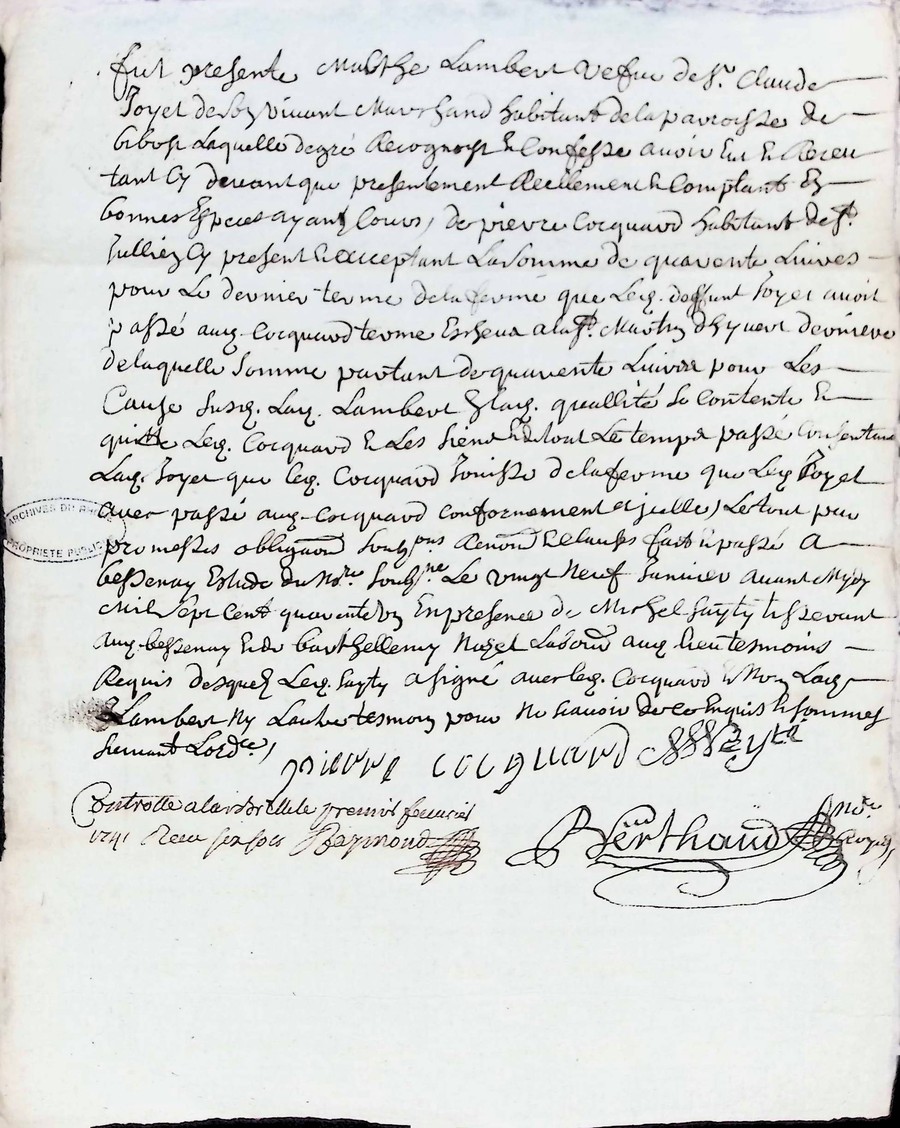 fut presente Marthe Lambert vefue de Sr. Claude
Joyet de Son vivant Marchand habitant de la parroisse de
bibost Laquelle de gré Recognoist & Confesse avoir Eut & Receu
tant Cy devant que presentement Reellement & Comptant En
bonnes Especes ayant Cours, de pierre Cocquard habitant de St.
Jullien Cy present & acceptant La Somme de quarente Livres
pour Le dernier terme de la ferme que Leq. deffunt Joyet avoit
passé auq. Cocquard terme Escheux a la St. Martin d'hyvert derniere
de laquelle Somme partant de quarente Livres pour Les
Cause Susq. Laq. Lambert En laq. quallité Se Contente &
quitte Leq. Cocquard & Les Siens & de tout Le temps passé Consentant
Laq. Joyet que Leq. Cocquard Jouisse de la ferme que Leq. Joyet
avec passé auq. Cocquard conformement a jcelle, Le tout par
promesses obligaons Soubzons Renons & Clauses fait & passé A
bessenay Estude du Nore Soubzne Le vingt Neuf Janvier avant Mydy
Mil Sept Cent quarente Un En presence de Michel Guyty tisserant
auq. bessenay & de barthellemy Nozet Labour auq. Lieu tesmoins
Requis desquels Leq. Guyty a signé avec leq. Cocquard & Non Laq.
Lambert Ny Lautre tesmoin pour Ne Scavoir de ce Enquis & Sommes
Suivant Lordce,
pierre cocquard
Controlle a la premier fevrier
1741 Receu six sols Raymond
Berthaud nore Royal
ARCHIVES DU RHÔNE
PROPRIETE PUBLIQUE